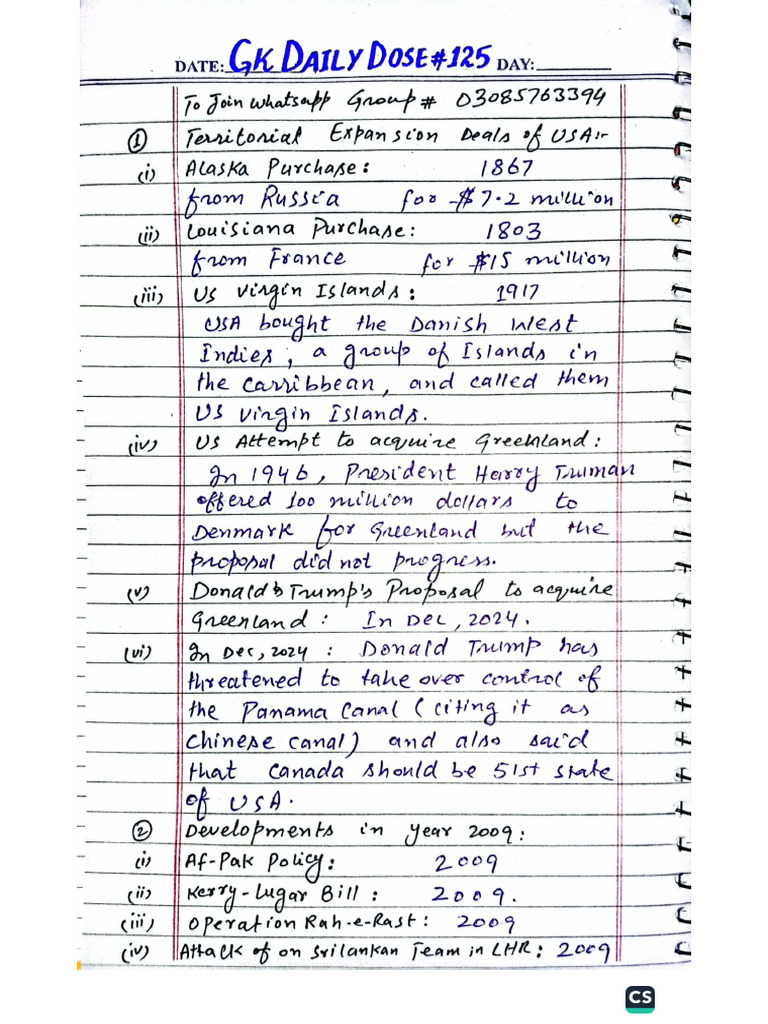 DATE: GK DAILY DOSE #125 DAY:
To Join Whatsapp Group # 03085763394
① Territorial Expansion Deals of USA:-
(i) Alaska Purchase: 1867
from Russia for $7.2 million
(ii) Louisiana Purchase: 1803
from France for $15 million
(iii) US Virgin Islands: 1917
USA bought the Danish West
Indies, a group of Islands in
the Carribbean, and called them
US Virgin Islands.
(iv) US Attempt to acquire Greenland:
In 1946, President Harry Truman
offered 100 million dollars to
Denmark for Greenland but the
proposal did not progress.
(v) Donald Trump's Proposal to acquire
Greenland: In Dec, 2024.
(vi) In Dec, 2024: Donald Trump has
threatened to take over control of
the Panama Canal (citing it as
Chinese canal) and also said
that Canada should be 51st state
of USA.
② Developments in year 2009:
(i) Af-Pak Policy: 2009
(ii) Kerry-Lugar Bill: 2009.
(iii) Operation Rah-e-Rast: 2009
(iv) Attack of on Srilankan Team in LHR: 2009
CS